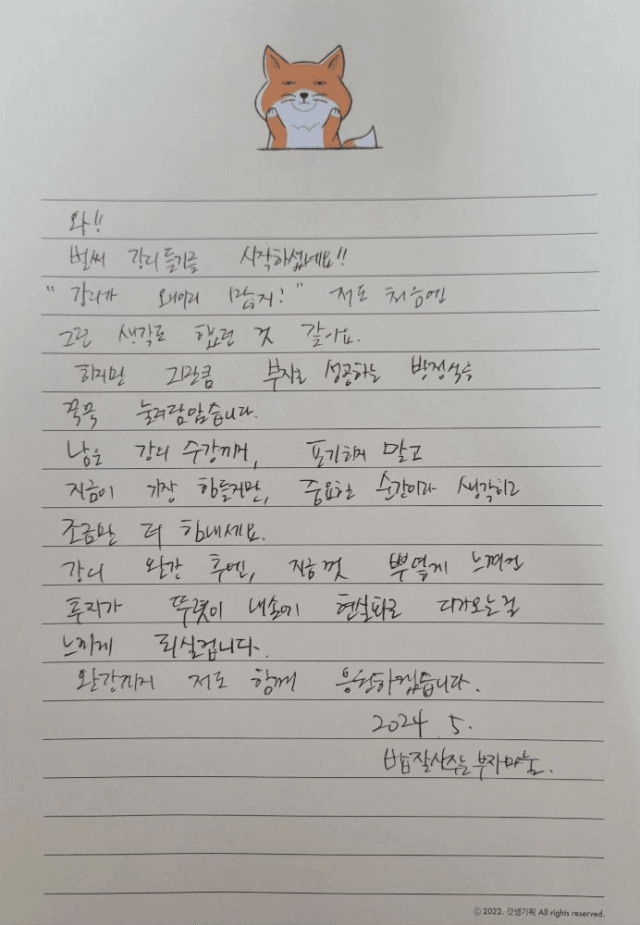 와!!
벌써 강의 듣기를 시작하셨네요!!
"강의가 왜이리 많지!" 저도 처음엔
그런 생각도 했던 것 같아요.
하지만 그만큼 부자로 성공하는 방정식을
꾹꾹 눌러담았습니다.
남은 강의 수강까지, 포기하지 말고
지금이 가장 힘들지만, 중요한 순간이라 생각하고
조금만 더 힘내세요.
강의 완강 후엔, 지금껏 뿌옇게 느껴진
투자가 뚜렷이 내손에 현실화로 다가오는걸
느끼게 되실겁니다.
완강까지 저도 함께 응원하겠습니다.
2024. 5.
밥잘사주는부자마눌.
© 2022. 갓생기획 All rights reserved.